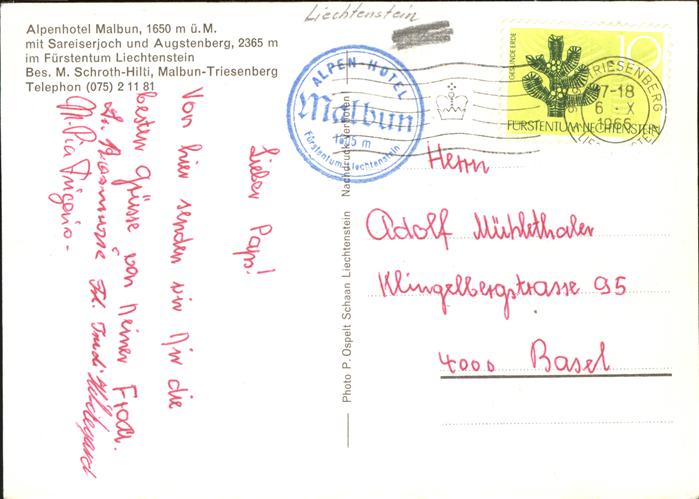 Liechtenstein
Alpenhotel Malbun, 1650 m ü. M.
mit Sareiserjoch und Augstenberg, 2365 m
im Fürstentum Liechtenstein
Bes. M. Schroth-Hilti, Malbun-Triesenberg
Telephon (075) 2 11 81
ALPEN-HOTEL
Malbun
m
Fürstentum Liechtenstein
GESUNDE ERDE
10
FÜRSTENTUM LIECHTENSTEIN
TRIESENBERG
7-18
6. X
1966
LIECHTENSTEIN
Lieber Paps!
Von hier senden wir Dir die
besten Grüsse von Deiner Frau.
Photo P. Ospelt Schaan Liechtenstein Nachdruck verboten
Herrn
Adolf Mühlethaler
Klingelbergstrasse 95
4000 Basel